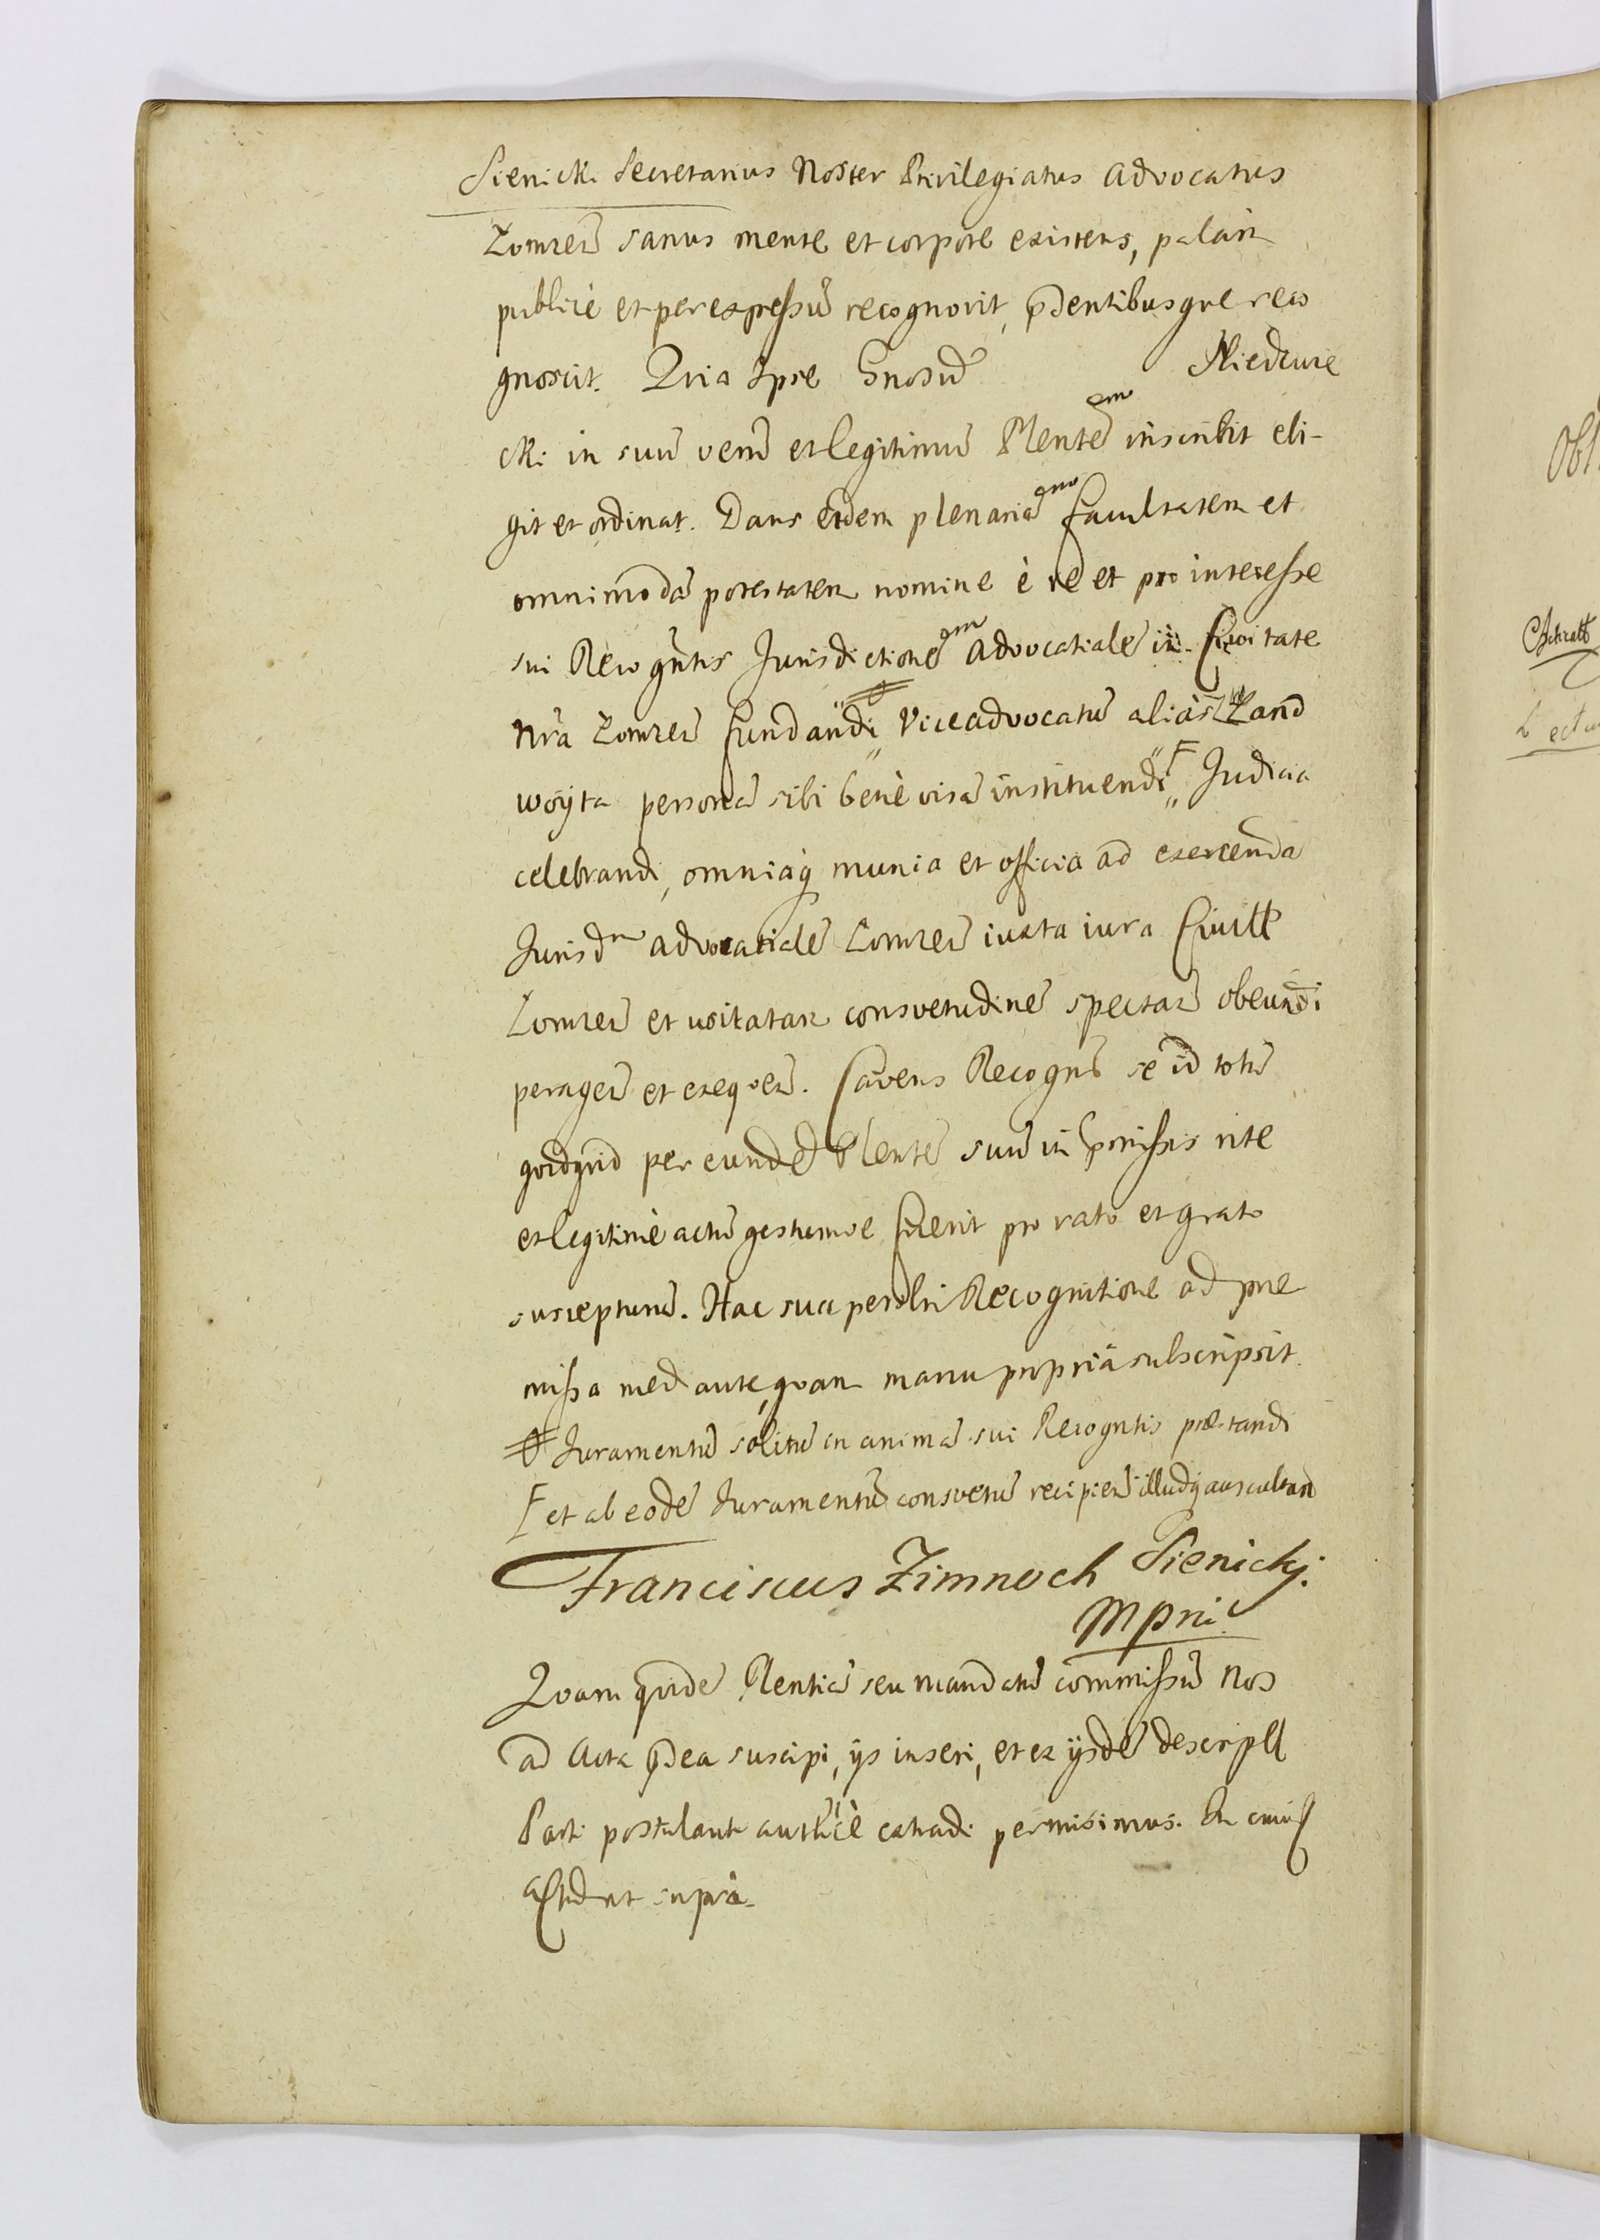 Sienicki Secretarius Noster Privilegiatus Advocatus
Łomzen̄ sanus mente et corpore existens, palàm
publicè et per expressū recognovit, p̄sentibusque reco
gnoscit. Quia Ipse Gnosū Niedzwie
cki in suū verū et legitimū Plentē inscribit eli-
git et ordinat. Dans eidem plenariā facultatem et
omnimodā potestatem nomine è re et pro interesse
sui Recogn̄tis Jurisdictionē Advocatialē in Civitate
Nr̄a Łomzen̄ fundandi Viceadvocatū aliàs Land
woyta personā sibi benè visā instituendi Judicia
celebrandi, omniaq₃ munia et officia ad exercenda
Jurisdn̄ advocatialē Łomzen̄ iuxta iura Civitt
Łomzen̄ et usitatam consvetudinē spectan̄ obeundi
peragen̄ et exeqven̄. Cavens Recogn̄s se id totū
qvidqvid per eundē Plentē suū in p̄missis rite
et legitimè actū gestumve fuerit pro rato et grato
suscepturū. Hac sua personli Recognitione ad pre
missa mediante, qvam manu propria subscripsit.
# Juramentū solitū in animā sui Recogn̄tis præstandi
F et ab eodē Juramentū consvetū recipien̄ illudq₃ auscultan̄
Franciscus Zimnoch Sienicky.
Mpria
Qvam qvidē Plentiā seu mandatū commissū Nos
ad Acta p̄sea suscipi, ijs inseri, et ex ijsdē descriptt
Parti postulanti authcè extradi permisimus. In cuius
Actū ut supra.